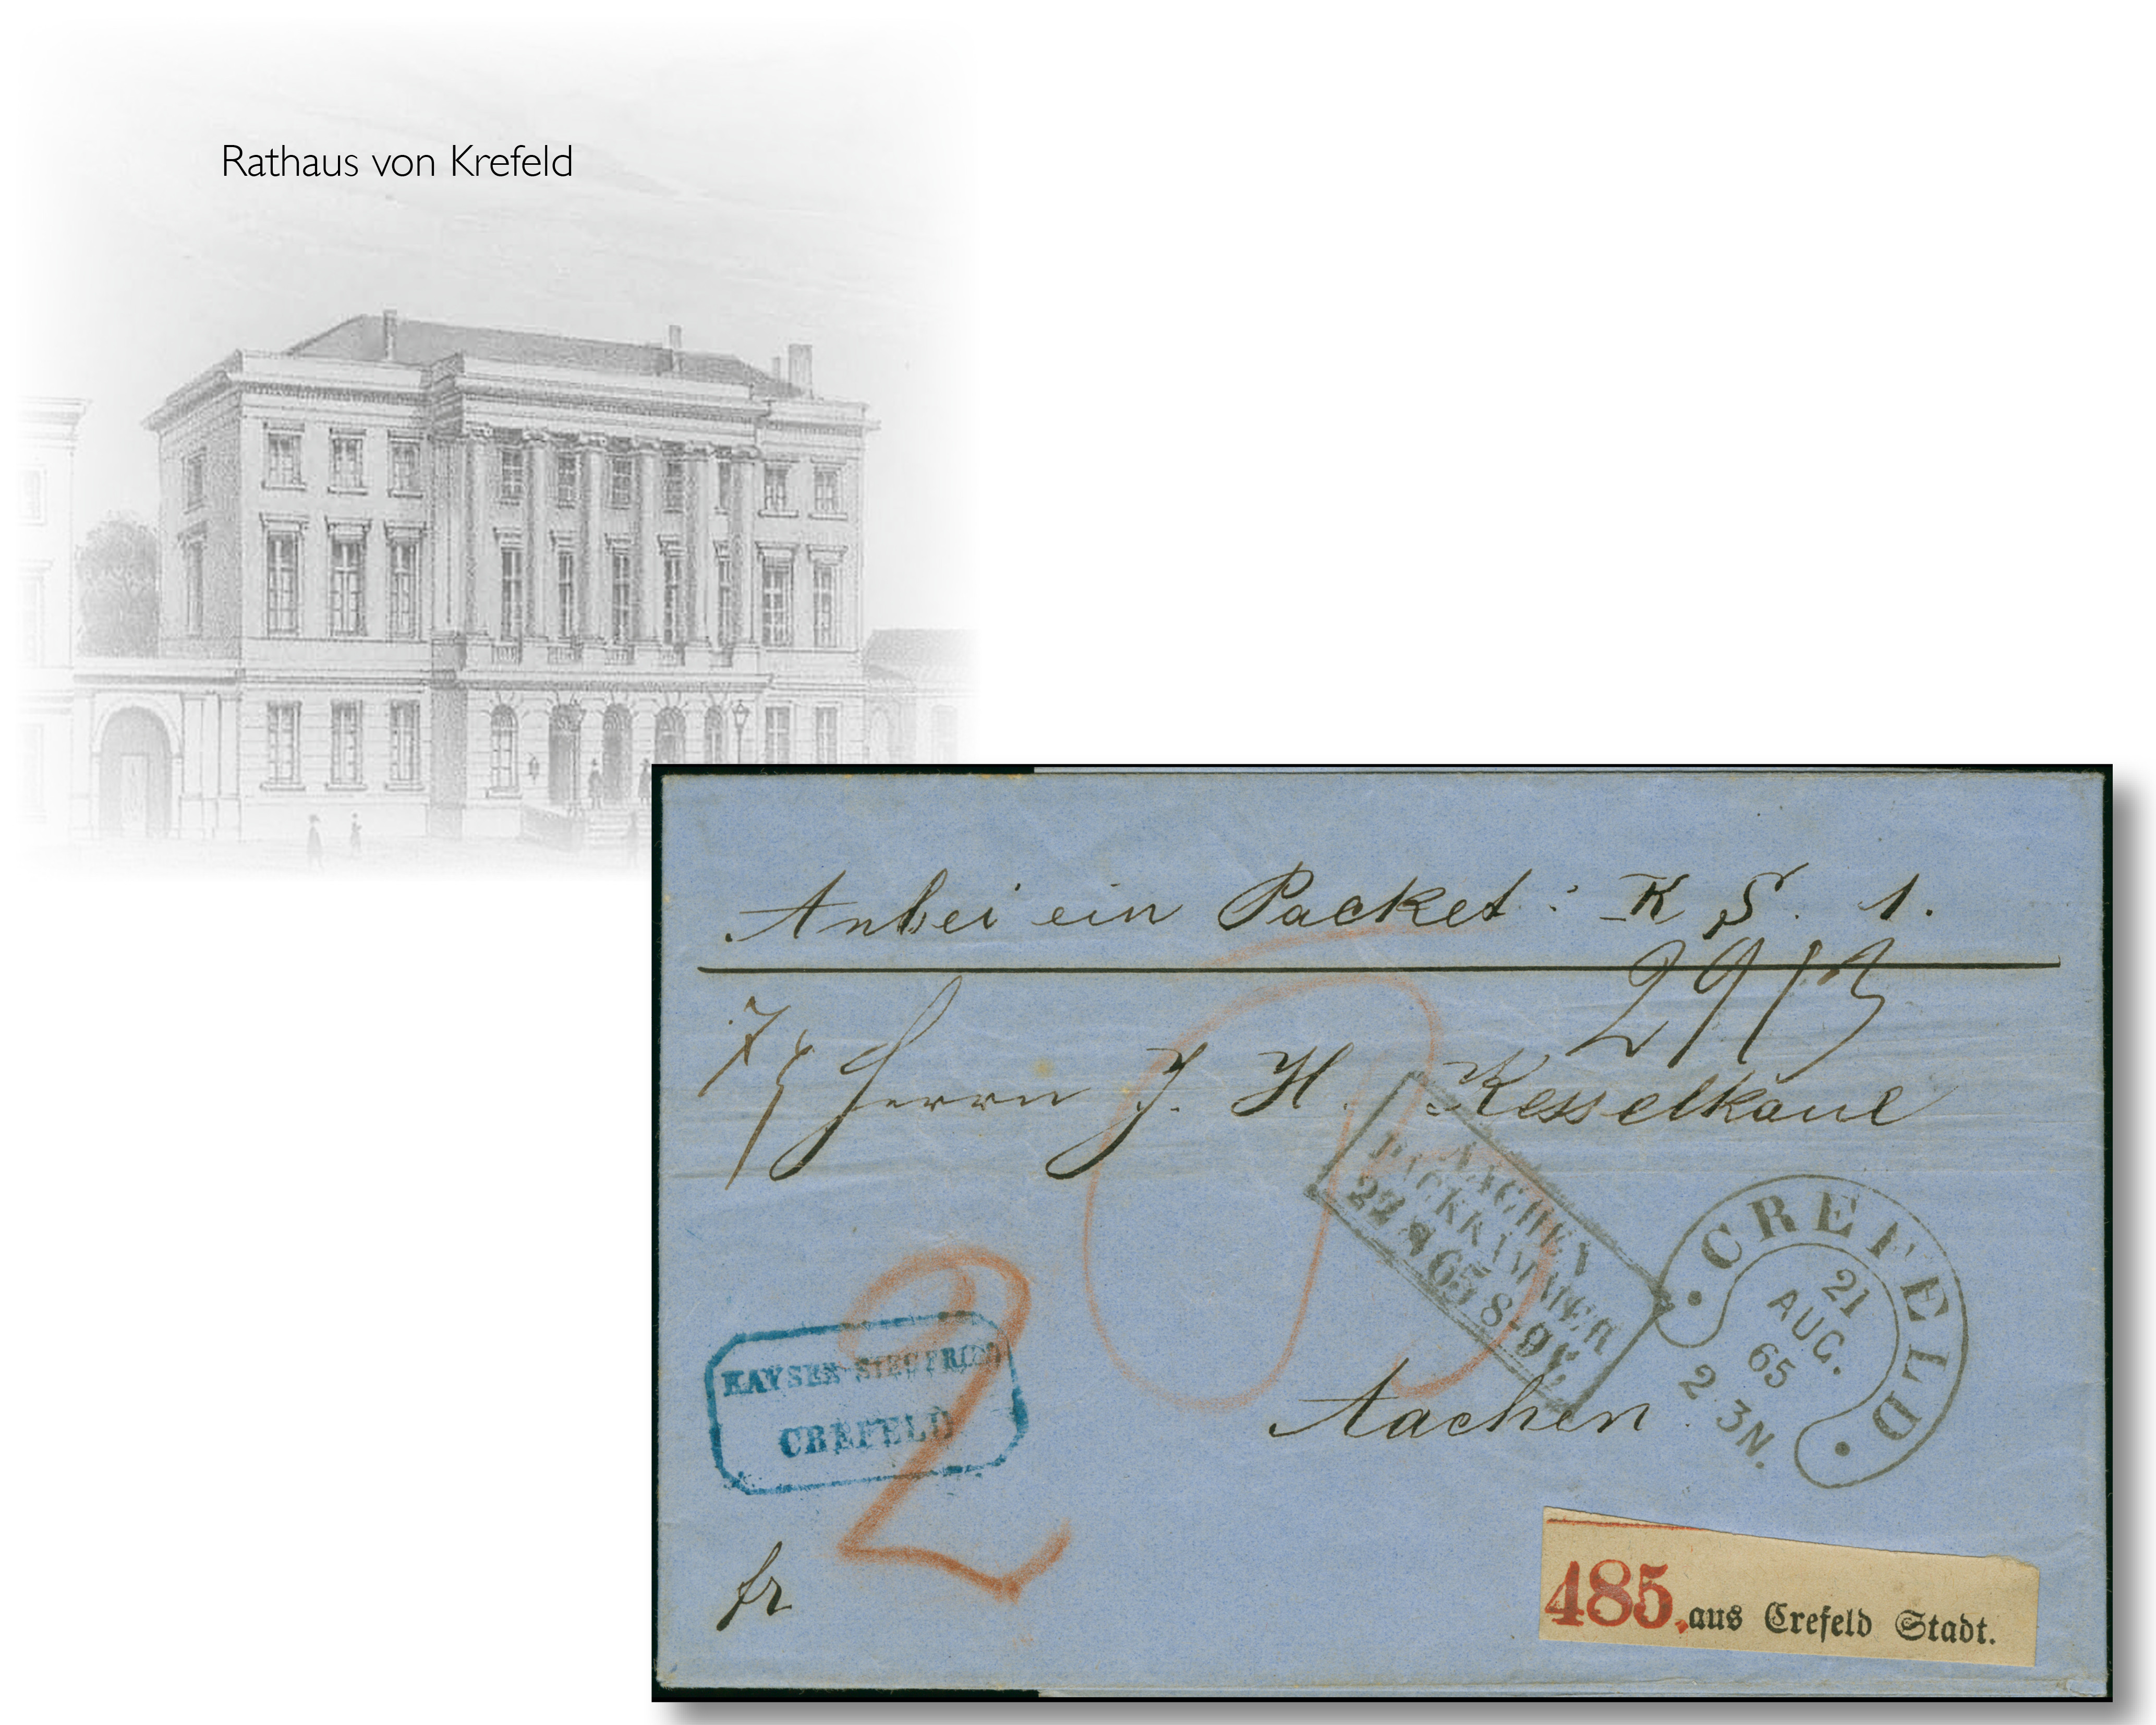 Rathaus von Krefeld
Anbei ein Packet: K S. 1.
Herrn J. H. Kesselkaul
AACHEN
PACKKAMMER
22 8 65 8-9
CREFELD
21
AUG.
65
2 3N.
KAYSER SIEGFRIED
CREFELD
2
Aachen
fr
485. aus Crefeld Stadt.